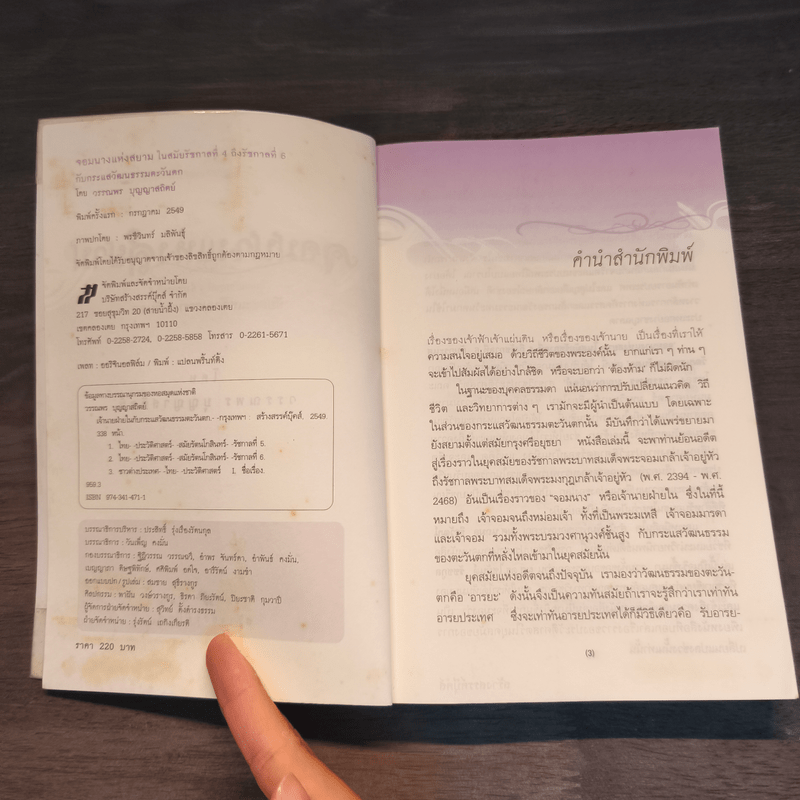 จอมนางแห่งสยาม ในสมัยรัชกาลที่ 4 ถึงรัชกาลที่ 6
กับกระแสวัฒนธรรมตะวันตก
โดย วรรณพร บุญญาสถิตย์
พิมพ์ครั้งแรก : กรกฎาคม 2549
ภาพปกโดย : พรชีวินทร์ มลิพันธุ์
จัดพิมพ์โดยได้รับอนุญาตจากเจ้าของลิขสิทธิ์ถูกต้องตามกฎหมาย
จัดพิมพ์และจัดจำหน่ายโดย
บริษัทสร้างสรรค์บุ๊คส์ จำกัด
217 ซอยสุขุมวิท 20 (สายน้ำผึ้ง) แขวงคลองเตย
เขตคลองเตย กรุงเทพฯ 10110
โทรศัพท์ 0-2258-2724, 0-2258-5858 โทรสาร 0-2261-5671
เพลท : ออริจินอลฟิล์ม / พิมพ์ : แปลนพริ้นท์ติ้ง
ข้อมูลทางบรรณานุกรมของหอสมุดแห่งชาติ
วรรณพร บุญญาสถิตย์.
เจ้านายฝ่ายในกับกระแสวัฒนธรรมตะวันตก.--กรุงเทพฯ : สร้างสรรค์บุ๊คส์, 2549.
338 หน้า.
1. ไทย--ประวัติศาสตร์--สมัยรัตนโกสินทร์--รัชกาลที่ 5.
2. ไทย--ประวัติศาสตร์--สมัยรัตนโกสินทร์--รัชกาลที่ 6.
3. ชาวต่างประเทศ--ไทย--ประวัติศาสตร์ I. ชื่อเรื่อง.
959.3
ISBN 974-341-471-1
บรรณาธิการบริหาร : ประสิทธิ์ รุ่งเรืองรัตนกุล
บรรณาธิการ : วันเพ็ญ คงมั่น
กองบรรณาธิการ : ฐิฏิวรรณ วรรณขวี, อำพร จันทร์ดา, อำพันธ์ คงมั่น,
เบญญาภา ศิพิมพ์ อดใจ, อารีรัตน์ งามขำ
ออกแบบปก/รูปเล่ม : สมชาย สุรีรางกูร
ศิลปกรรม : วงษ์วรางกูร, ธีรดา เปียะชาติ กุมวาปี
ผู้จัดการฝ่ายจัดจำหน่าย : สุวิทย์ ตั้งดำรงธรรม
ฝ่ายจัดจำหน่าย : รุ่งรัตน์ เธถึงเกียรติ
ราคา 220 บาท
คำนำสำนักพิมพ์
เรื่องของเจ้าฟ้าเจ้าแผ่นดิน หรือเรื่องของเจ้านาย เป็นเรื่องที่เราให้
ความสนใจอยู่เสมอ ด้วยวิถีชีวิตของพระองค์นั้น ยากแก่เรา ๆ ท่าน ๆ
จะเข้าไปสัมผัสได้อย่างใกล้ชิด หรือจะบอกว่า 'ต้องห้าม' ก็ไม่ผิดนัก
ในฐานะของบุคคลธรรมดา แน่นอนว่าการปรับเปลี่ยนแนวคิด วิถี
ชีวิต และวิทยาการต่าง ๆ เรามักจะมีผู้นำเป็นต้นแบบ โดยเฉพาะ
ในส่วนของกระแสวัฒนธรรมตะวันตกนั้น มีบันทึกว่าได้แพร่ขยายมา
ยังสยามตั้งแต่สมัยกรุงศรีอยุธยา หนังสือเล่มนี้ จะพาท่านย้อนอดีต
สู่เรื่องราวในยุคสมัยของรัชกาลพระบาทสมเด็จพระจอมเกล้าเจ้าอยู่หัว
ถึงรัชกาลพระบาทสมเด็จพระมงกุฎเกล้าเจ้าอยู่หัว (พ.ศ. 2394 - พ.ศ.
2468) อันเป็นเรื่องราวของ "จอมนาง" หรือเจ้านายฝ่ายใน ซึ่งในที่นี้
หมายถึง เจ้าจอมจนถึงหม่อมเจ้า ทั้งที่เป็นพระมเหสี เจ้าจอมมารดา
และเจ้าจอม รวมทั้งพระบรมวงศานุวงศ์ชั้นสูง กับกระแสวัฒนธรรม
ของตะวันตกที่หลั่งไหลเข้ามาในยุคสมัยนั้น
ยุคสมัยแห่งอดีตจนถึงปัจจุบัน เรามองว่าวัฒนธรรมของตะวัน-
ตกคือ 'อารยะ' ดังนั้นจึงเป็นความทันสมัยถ้าเราจะรู้สึกว่าเราเท่าทัน
อารยประเทศ ซึ่งจะเท่าทันอารยประเทศได้ก็มีวิธีเดียวคือ รับอารย-
(3)